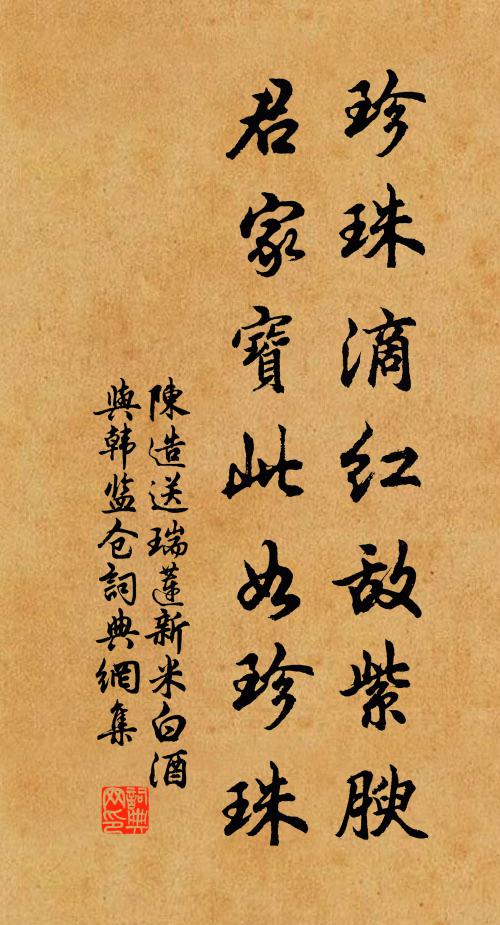 珍珠滴红敌紫腴
君家寳此如珍珠
陳造送瑞蓮新米白酒
與韩监仓詞典網集
詞典网印